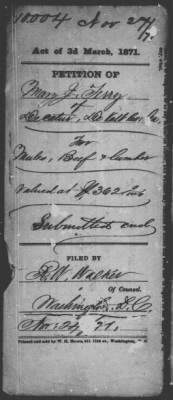 10004 Nov 24/71.
Act of 3d March, 1871.
PETITION OF
Mary J. Terry
of
Decatur, De Kalb Co. Ga.
For
Mules, Beef & lumber
valued at $362
Submitted and
FILED BY
R. W. Walker
Of Counsel.
Washington, D. C.
Nov. 24, 71.
Printed and sold by W. H. Moore, 511 11th st., Washington, D. C.